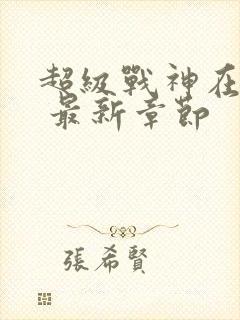 超級戰神在
最新章節
張希賢